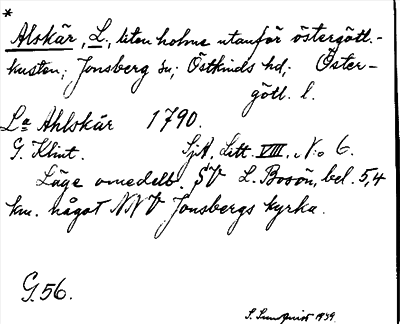 *
Alskär, L., liten holme utanför östergötl.-
kusten; Jonsberg sn; Östkinds hd; Öster-
götl. l.
La Ahlskär 1790.
G. Klint. SjA, Litt. VIII. No 6.
Läge omedelb. SV L. Bosön, bel. 5,4
km. något NNV Jonsbergs kyrka.
G. 56.
1939